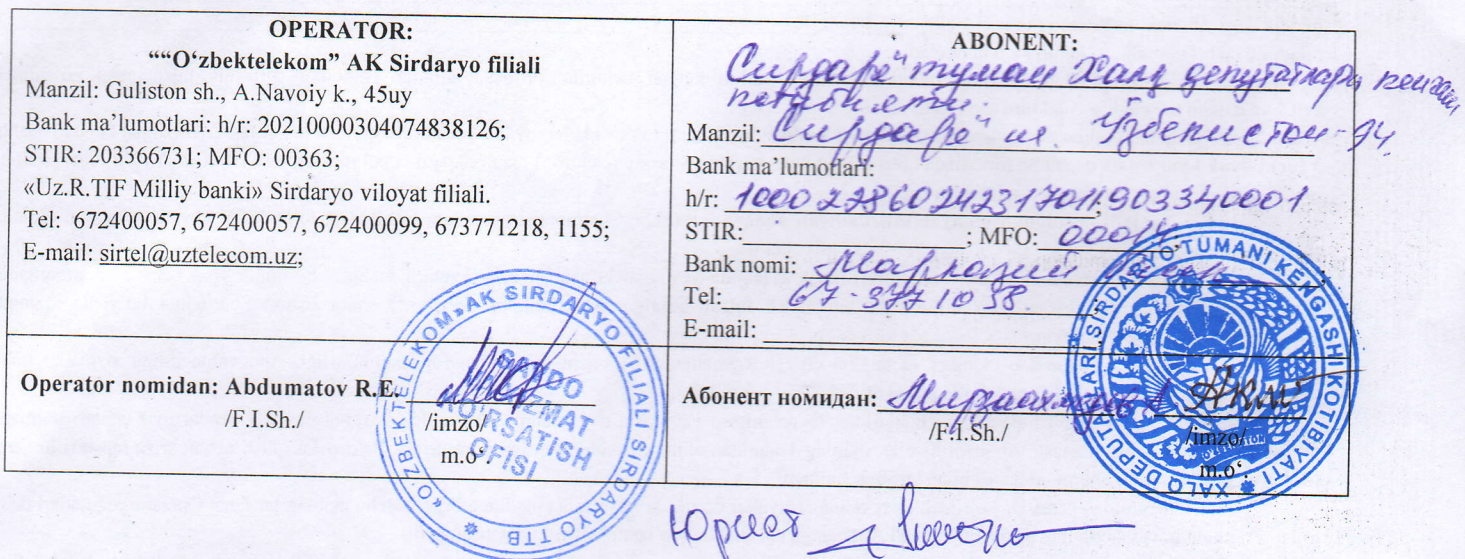 OPERATOR:
““O‘zbektelekom” AK Sirdaryo filiali
Manzil: Guliston sh., A.Navoiy k., 45uy
Bank ma’lumotlari: h/r: 20210000304074838126;
STIR: 203366731; MFO: 00363;
«Uz.R.TIF Milliy banki» Sirdaryo viloyat filiali.
Tel: 672400057, 672400057, 672400099, 673771218, 1155;
E-mail: sirtel@uztelecom.uz;
Operator nomidan: Abdumatov R.E.
/F.I.Sh./ /imzo/
m.o‘.
«O‘ZBEKTELEKOM» AK SIRDARYO FILIALI SIRDARYO TTB
XIZMAT
KO‘RSATISH
OFISI
ABONENT:
Сирдарё туман Халқ депутатлари кенгаши
котибияти.
Manzil: Сирдарё ш. Ўзбекистон-94
Bank ma’lumotlari:
h/r: 100022860242317011903340001
STIR: ; MFO: 00014;
Bank nomi: Марказий банк;
Tel: 67 377 10 38.
E-mail:
Абонент номидан: Мирзаахмедов
/F.I.Sh./ /imzo/
m.o‘
XALQ DEPUTATLARI SIRDARYO TUMANI KENGASHI KOTIBIYATI
O‘ZBEKISTON
Юрист